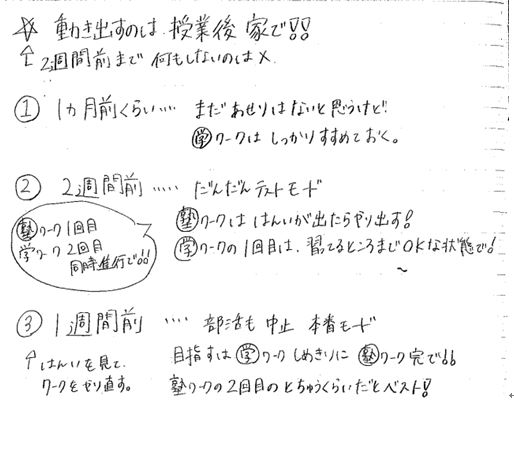 ☆ 動き出すのは 授業後 家で!!
↑ 2週間前まで 何もしないのは×
① 1ヵ月前くらい… まだあせりはないと思うけど!
学ワークは しっかりすすめておく。
② 2週間前 ….. だんだんテストモード
塾ワークは はんいが出たらやり出す!
学ワークの1回目は、習てるところまでOKな状態で!
塾ワーク1回目
学ワーク2回目
同時進行で!!
③ 1週間前 …. 部活も中止 本番モード
目指すは学ワークしめきりに 塾ワーク完で!!
塾ワークの2回目のとちゅうくらいだとベスト!
↑はんいを見て、
ワークをやり直す。